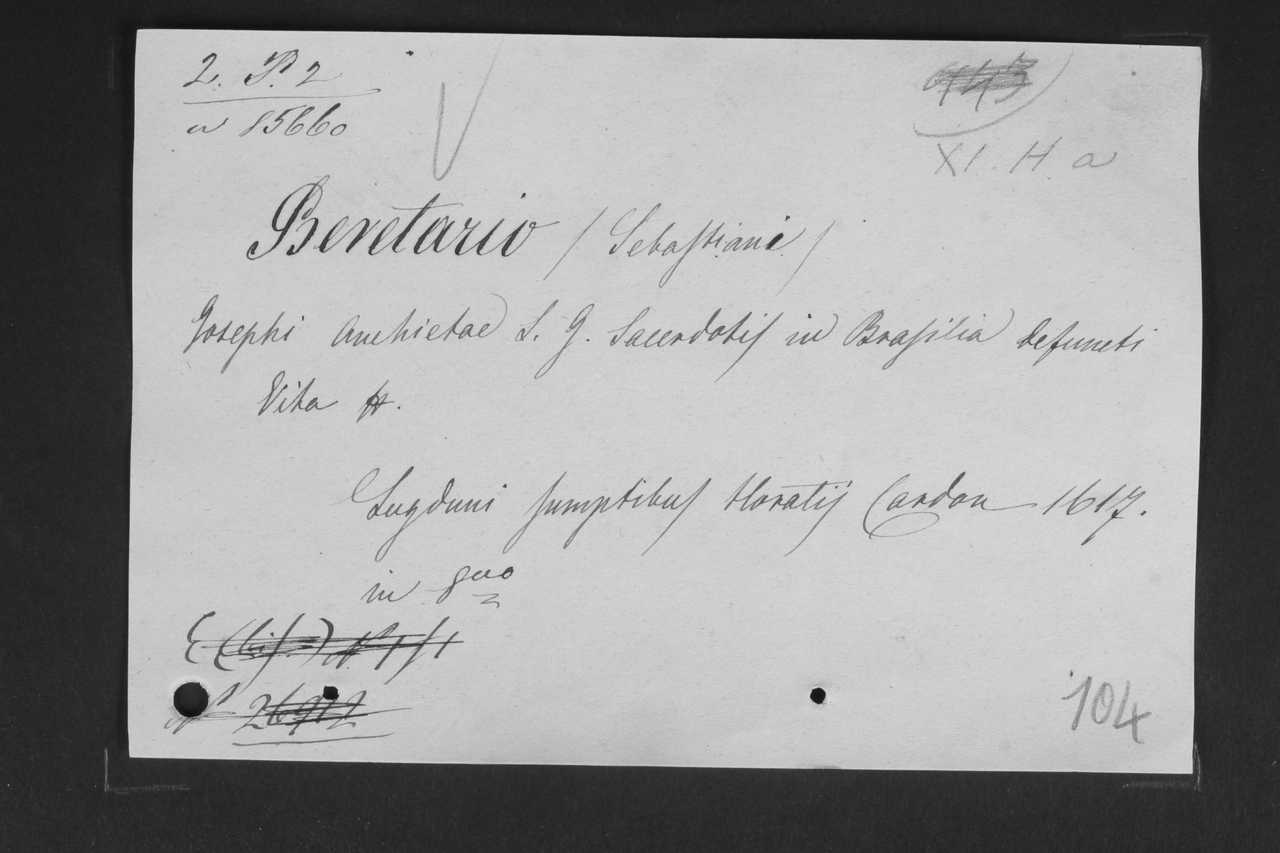 2. P. 2
15660
XI. H. a
Beretario / Sebastiani /
Josephi Anchietae S. J. Sacerdotis in Brasilia defuncti
Vita
Lugduni sumptibus Horatij Cardon 1617.
in 8uo
104